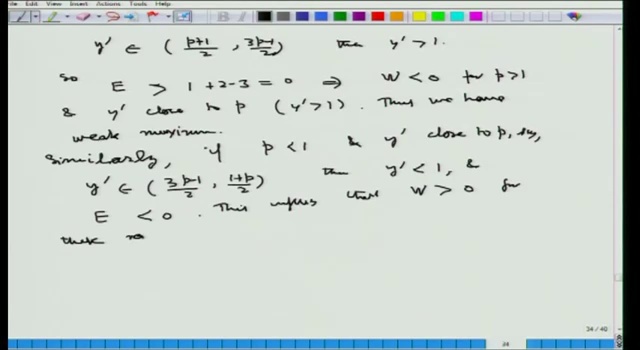 File View Insert Actions Tools Help
y' ∈ ( p+1/2 , 3p-1/2 ) then y' > 1.
So E > 1 + 2 - 3 = 0 ⇒ W < 0 for p > 1
& y' close to p ( y' > 1 ) . Thus we have
weak maximum.
Similarly, if p < 1 & y' close to p, say,
y' ∈ ( 3p-1/2 , 1+p/2 ) then y' < 1, &
E < 0 . This implies that W > 0 for
these
34 / 40
34